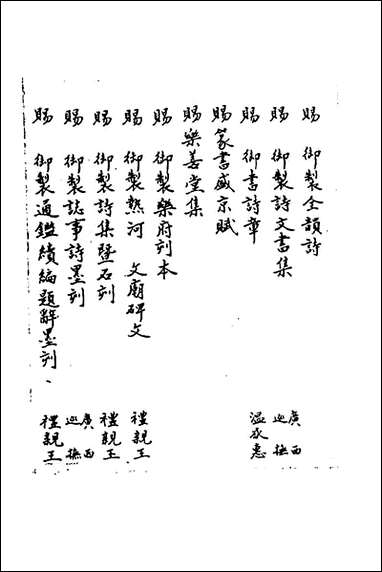 賜 御製全韻詩
賜 御製詩文書集 廣西巡撫
賜 御書詩章 溫承惠
賜 篆書盛京賦
賜 樂善堂集
賜 御製樂府刻本
賜 御製熱河 文廟碑文 禮親王
賜 御製詩集暨石刻 禮親王
賜 御製誌事詩墨刻 廣西巡撫
賜 御製通鑑續編題辭墨刻 禮親王